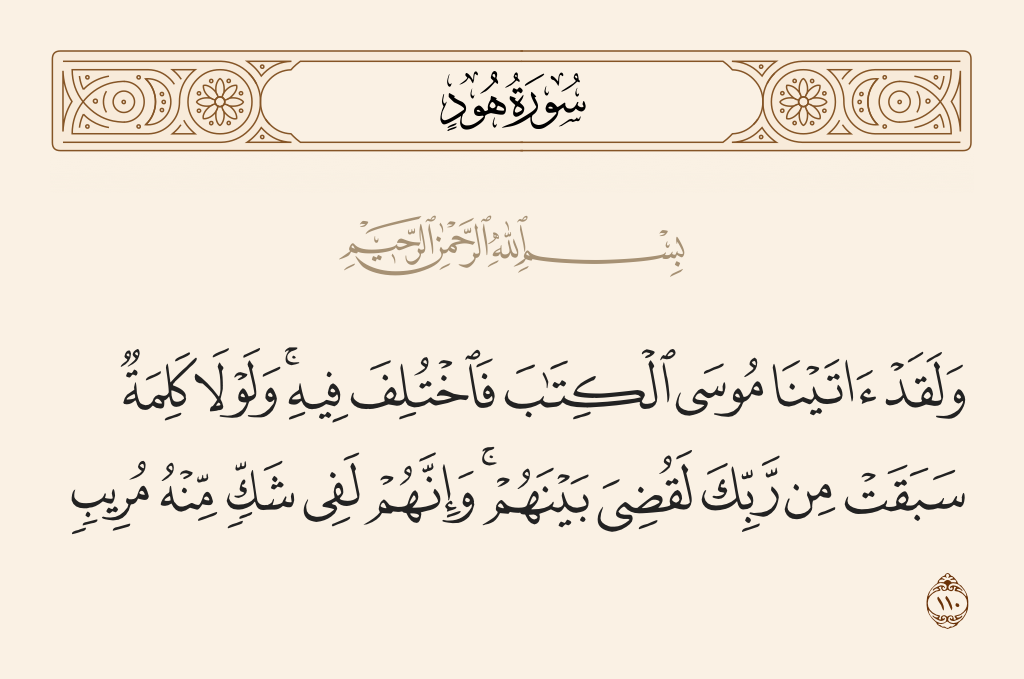 سُورَةُ هُودٍ
بِسْمِ ٱللَّهِ ٱلرَّحْمَٰنِ ٱلرَّحِيمِ
وَلَقَدْ ءَاتَيْنَا مُوسَى ٱلْكِتَٰبَ فَٱخْتُلِفَ فِيهِ ۚ وَلَوْلَا كَلِمَةٌ
سَبَقَتْ مِن رَّبِّكَ لَقُضِىَ بَيْنَهُمْ ۚ وَإِنَّهُمْ لَفِى شَكٍّ مِّنْهُ مُرِيبٍ
١١٠